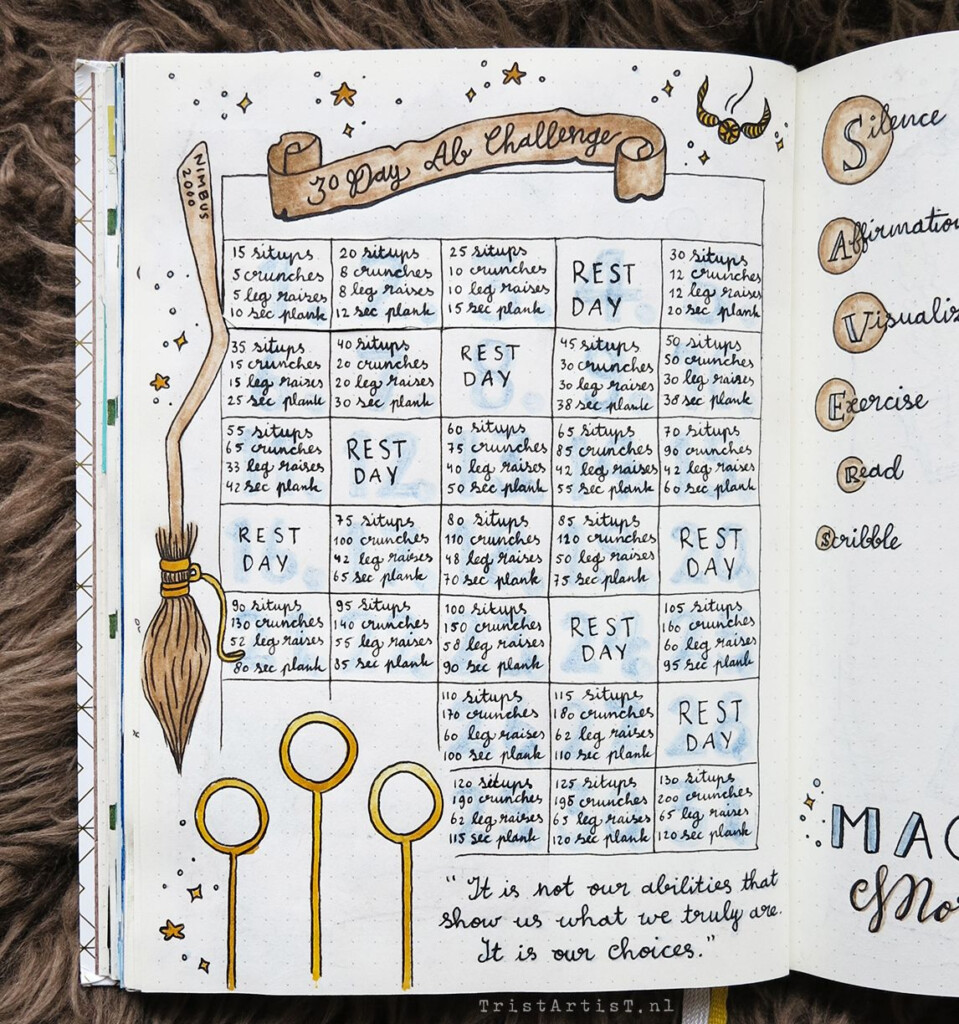 30 Day Ab Challenge
NIMBUS
2000
15 situps
5 crunches
5 leg raises
10 sec plank
20 situps
8 crunches
8 leg raises
12 sec plank
25 situps
10 crunches
10 leg raises
15 sec plank
REST
DAY
30 situps
12 crunches
12 leg raises
20 sec plank
35 situps
15 crunches
15 leg raises
25 sec plank
40 situps
20 crunches
20 leg raises
30 sec plank
REST
DAY
45 situps
30 crunches
30 leg raises
38 sec plank
50 situps
50 crunches
30 leg raises
38 sec plank
55 situps
65 crunches
33 leg raises
42 sec plank
REST
DAY
60 situps
75 crunches
40 leg raises
50 sec plank
65 situps
85 crunches
42 leg raises
55 sec plank
70 situps
90 crunches
42 leg raises
60 sec plank
REST
DAY
75 situps
100 crunches
42 leg raises
65 sec plank
80 situps
110 crunches
48 leg raises
70 sec plank
85 situps
120 crunches
50 leg raises
75 sec plank
REST
DAY
90 situps
130 crunches
52 leg raises
80 sec plank
95 situps
140 crunches
55 leg raises
85 sec plank
100 situps
150 crunches
58 leg raises
90 sec plank
REST
DAY
105 situps
160 crunches
60 leg raises
95 sec plank
110 situps
170 crunches
60 leg raises
100 sec plank
115 situps
180 crunches
62 leg raises
110 sec plank
REST
DAY
120 situps
190 crunches
62 leg raises
115 sec plank
125 situps
195 crunches
65 leg raises
120 sec plank
130 situps
200 crunches
65 leg raises
120 sec plank
"It is not our abilities that
show us what we truly are.
It is our choices."
Silence
Affirmation
Visualiz
Exercise
Read
Scribble
MAG
Mor
TristArtisT.nl